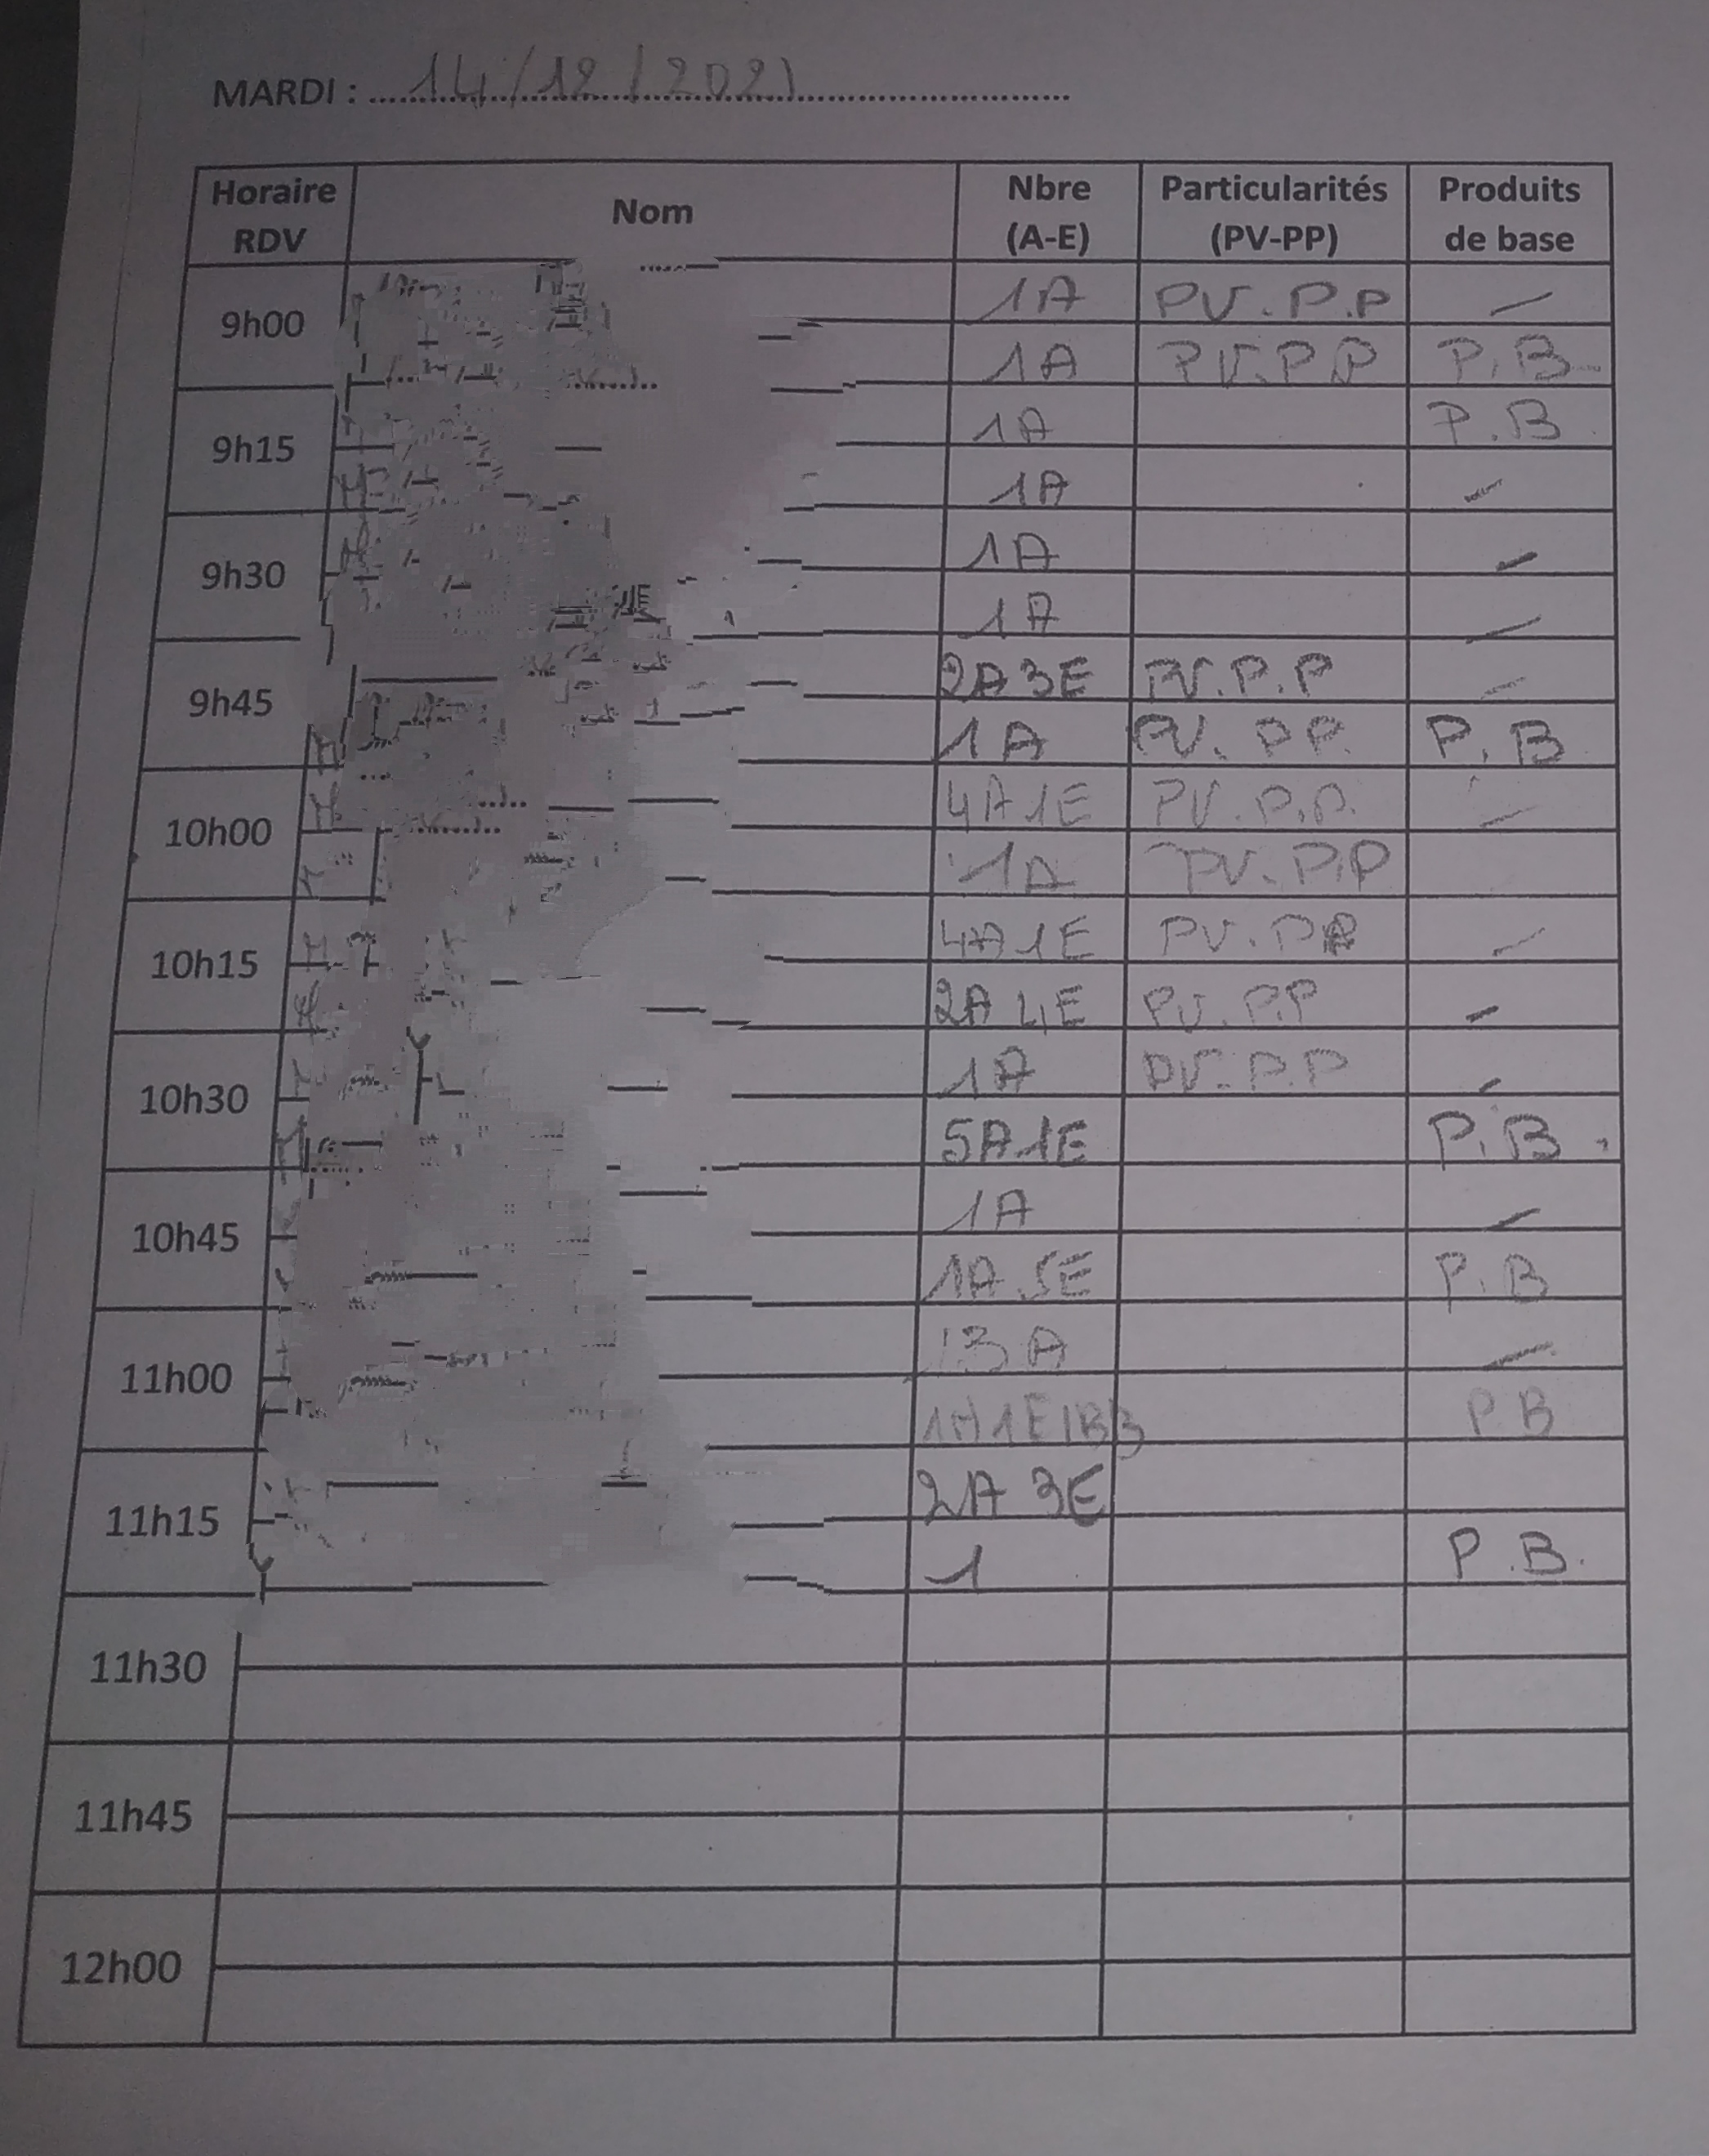 MARDI : 14/12/2021
Horaire RDV Nom Nbre (A-E) Particularités (PV-PP) Produits de base
9h00 1A PV.P.P —
1A PV.P.P P.B
9h15 1A P.B
1A —
9h30 1A —
1A —
9h45 2A 3E PV.P.P —
1A PV.P.P. P.B
10h00 4A 1E PV.P.P. —
1A PV.P.P
10h15 4A 1E PV.PP —
2A 4E PV.P.P —
10h30 1A PV.P.P —
5A 1E P.B.
10h45 1A —
1A 5E P.B
11h00 3A —
1A 1E 1BB P B
11h15 2A 3E
1 P.B.
11h30
11h45
12h00